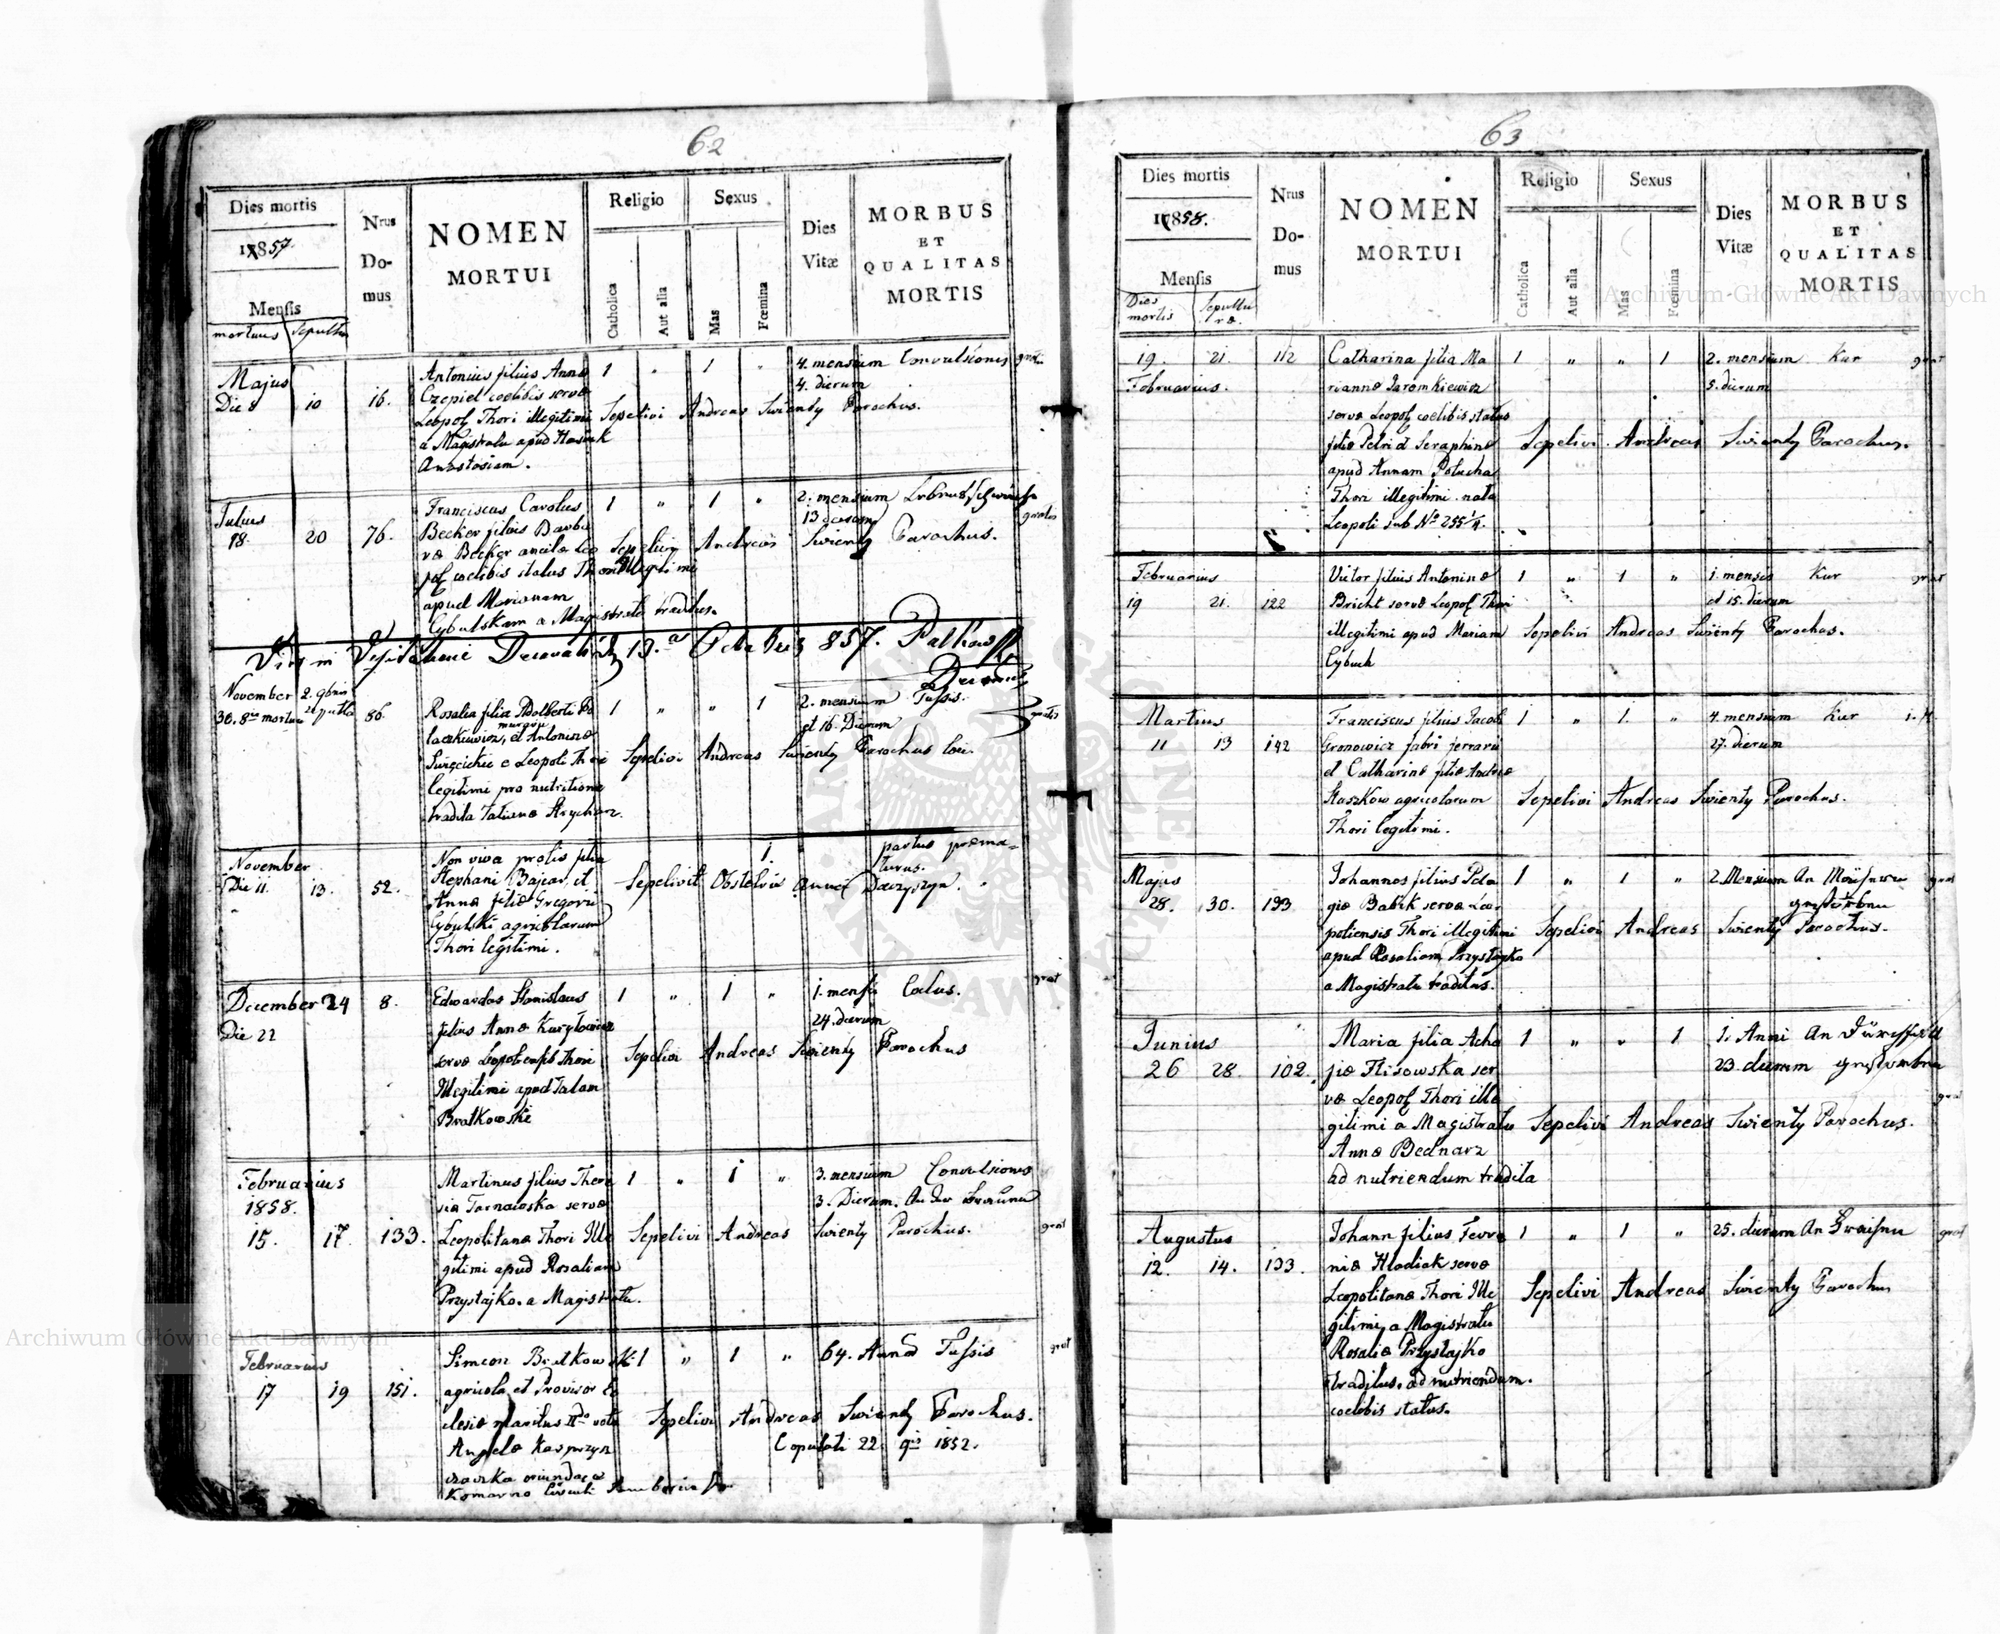 62
Dies mortis
1857.
Mensis
mortuus
Nrus
Do-
mus
NOMEN
MORTUI
Religio
Catholica
Aut alia
Sexus
Mas
Fœmina
Dies
Vitæ
MORBUS
ET
QUALITAS
MORTIS
Majus
Die 8 10 16.
Antonius filius Annæ
Czepiel coelibis servæ
Leopol Thori illegitimi
a Magistratu apud
Anastasiam.
1 " 1 "
4. mensium Convulsiones
4. dierum
Sepelivi Andreas Swienty Parochus.
Julius
18. 20 76.
Franciscus Carolus
Becker filius Barba
ræ Becker ancilæ Leo
pol coelibis status Thori Illegitimi
apud Marianam
Cybulskam a Magistratu traditus.
1 " 1 "
2. mensium
13 dierum
gratis
Sepelivi Andreas Swienty Parochus.
13.a Octobris 857.
November
30. 8bris mortua
2. 9bris
sepulta
86.
Rosalia filia Adalberti Po
laczkiewicz, et Antoninæ
Swięcickie e Leopoli Thori
legitimi pro nutritione
tradita Tatianæ Hrycharz.
1 " " 1
2. mensium Tussis.
et 16. Dierum
gratis
Sepelivi Andreas Swienty Parochus loci.
November
Die 11. 13. 52.
Non viva prolis filia
Stephani Bajcar, et
Annæ filiæ Gregorii
Cybulski agricolarum
Thori legitimi.
1.
partus præma-
turus.
Sepelivit Obstetrix Anna Daczyszyn.
December 24 8.
Die 22
Edwardus Stanislaus
filius Annæ Kuryłowicz
servæ Leopoliensis Thori
Illegitimi apud
Bratkowski
1 " 1 "
1. mensis
24. dierum
grat
Sepelivi Andreas Swienty Parochus
Februarius
1858.
15. 17. 133.
Martinus filius There
siæ Tarnawska servæ
Leopolitanæ Thori Ille
gitimi apud Rosaliam
Przystajko. a Magistratu.
1 " 1 "
3. mensium Convulsiones
3. Dierum.
grat
Sepelivi Andreas Swienty Parochus.
Februarius
17 19 151.
Simeon Bratkowski
agricola et Provisor Ec
clesiæ maritus IIdo voto
Angelæ Kasprzyn
oriundae
Komarno Circuli
1 " 1 "
64. Anno Tussis
grat
Sepelivi Andreas Swienty Parochus.
Copulati 22. 9bris 1852.
63
Dies mortis
1858.
Mensis
Dies
mortis
Sepultu
ræ.
Nrus
Do-
mus
NOMEN
MORTUI
Religio
Catholica
Aut alia
Sexus
Mas
Fœmina
Dies
Vitæ
MORBUS
ET
QUALITAS
MORTIS
19. 21. 112
Februarius.
Catharina filia Ma
riannæ Jaromkiewicz
servæ Leopol coelibis status
filiæ Petri et Seraphinæ
apud Annam Potucha
Thori illegitimi nata
Leopoli sub No 255 1/4.
1 " " 1
2. mensium
5. dierum
grat
Sepelivi Andreas Swienty Parochus.
Februarius
19 21. 122
Victor filius Antoninæ
Bricht servæ Leopol Thori
illegitimi apud Mariam
Cybuch
1 " 1 "
1. mensis
et 15. dierum
grat
Sepelivi Andreas Swienty Parochus.
Martius
11 13 142
Franciscus filius Jacobi
Gronowicz fabri ferrarii
et Catharinæ filiæ Andreæ
Staszkow agricolarum
Thori legitimi.
1 " 1. "
4. mensium
27. dierum
Sepelivi Andreas Swienty Parochus.
Majus
28. 30. 133
Johannes filius Pela
giæ Babik servæ Leo
poliensis Thori illegitimi
apud Rosaliam Przystajko
a Magistratu traditus.
1 " 1 "
2. Mensium
grat
Sepelivi Andreas Swienty Parochus.
Junius
26 28. 102.
Maria filia Acha
fiæ Flisowska ser
væ Leopol Thori ille
gitimi a Magistratu
Annæ Bednarz
ad nutriendum tradita
1 " " 1
1. Anni
23. dierum
grat
Sepelivi Andreas Swienty Parochus.
Augustus
12. 14. 133.
Johann filius Fevro
niæ Hladiak servæ
Leopolitanæ Thori Ille
gitimi, a Magistratu
Rosaliæ Przystajko
traditus. ad nutriendum.
coelebis status.
1 " 1 "
25. dierum
grat
Sepelivi Andreas Swienty Parochus
Archiwum Główne Akt Dawnych
Archiwum Główne Akt Dawnych